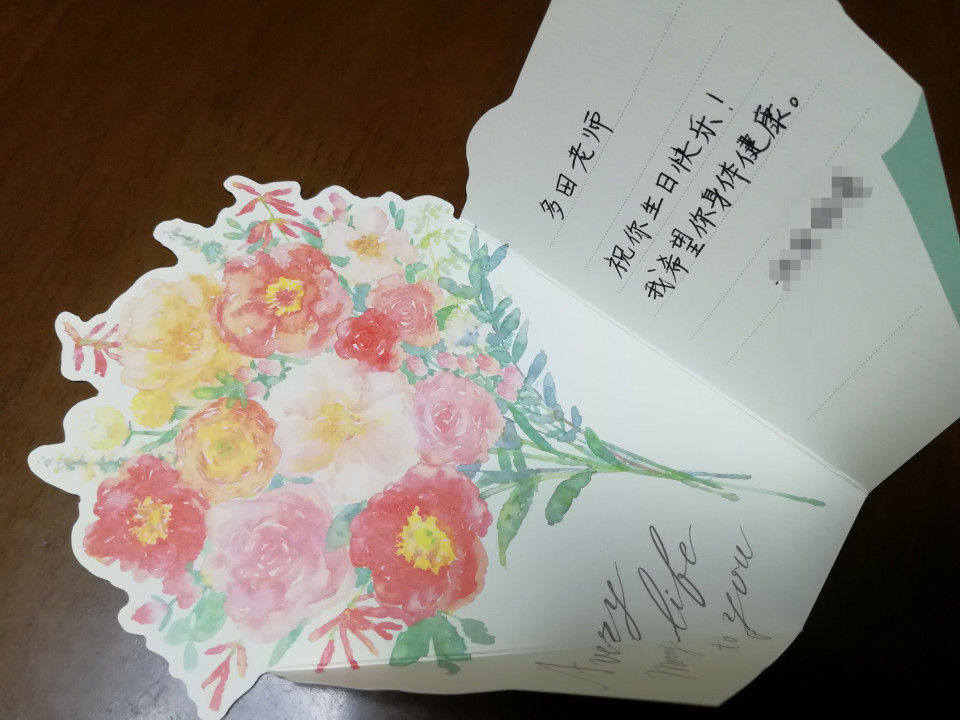 多田老师
祝你生日快乐！
我希望你身体健康。
A very
life
to you